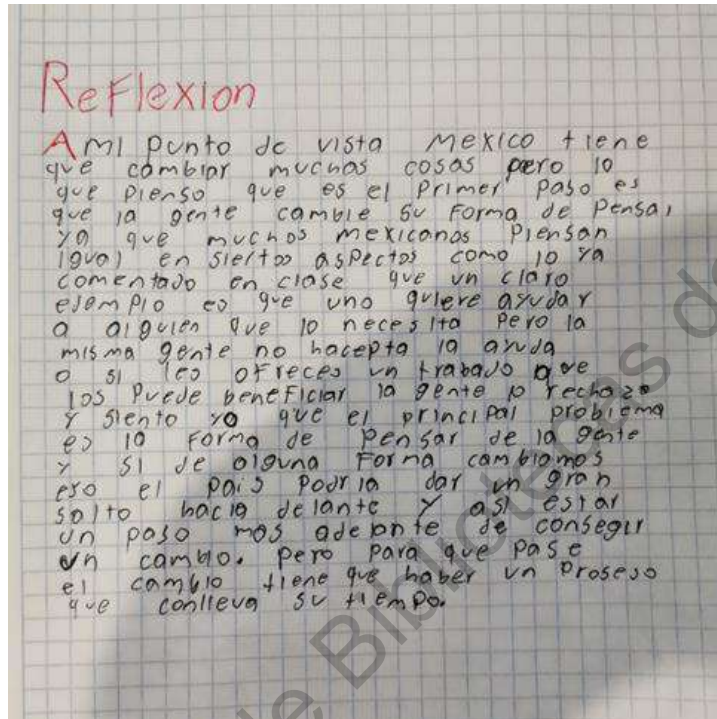 Reflexion
A mi punto de vista Mexico tiene
que cambiar muchas cosas pero lo
que pienso que es el primer paso es
que la gente cambie su forma de pensar
ya que muchos mexicanos piensan
igual en siertos aspectos como lo ya
comentado en clase que un claro
ejemplo es que uno quiere ayudar
a alguien que lo necesita pero la
misma gente no hacepta la ayuda
o si les ofreces un trabado que
los puede beneficiar la gente lo rechaza
y siento yo que el principal problema
es la forma de pensar de la gente
y si de alguna forma cambiamos
eso el pais podria dar un gran
salto hacia delante y asi estar
un paso mas adelante de consegir
un cambio. pero para que pase
el cambio tiene que haber un proseso
que conlleva su tiempo.
de Bibliotecas de